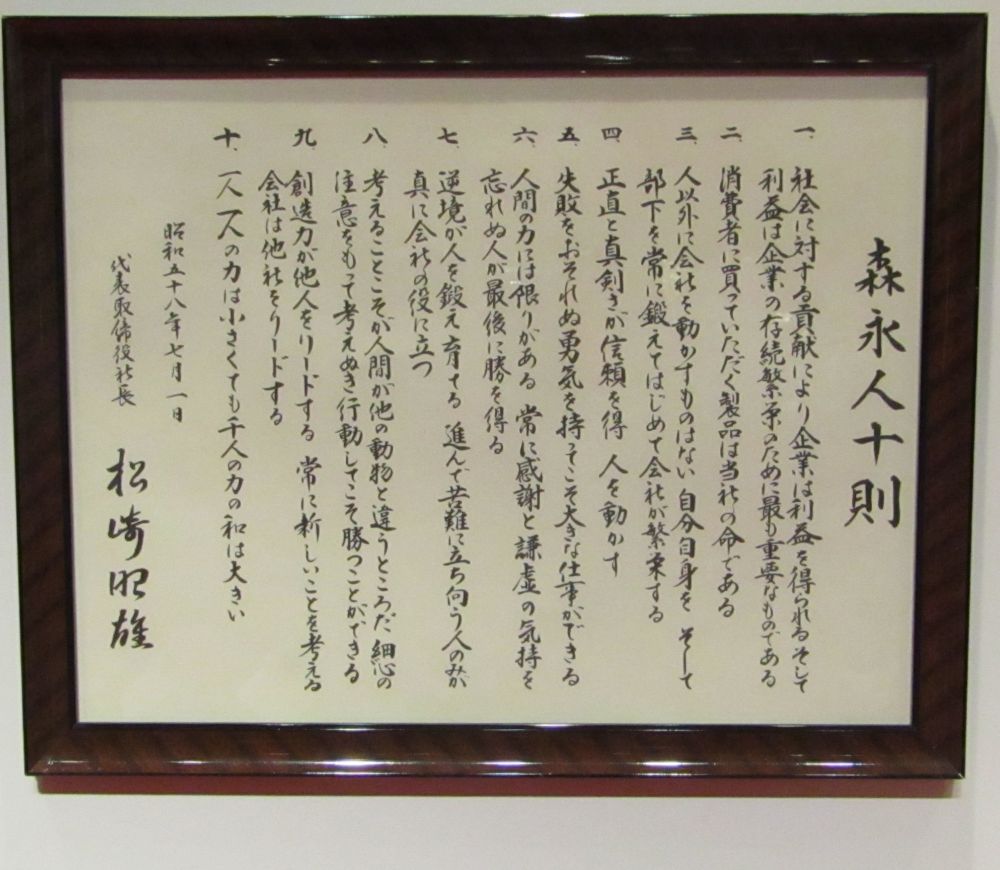 森永人十則
一、社会に対する貢献により企業は利益を得られる そして
利益は企業の存続繁栄のために最も重要なものである
二、消費者に買っていただく製品は当社の命である
三、人以外に会社を動かすものはない 自分自身を そして
部下を常に鍛えてはじめて会社が繁栄する
四、正直と真剣さが信頼を得 人を動かす
五、失敗をおそれぬ勇気を持ってこそ大きな仕事ができる
六、人間の力には限りがある 常に感謝と謙虚の気持を
忘れぬ人が最後に勝を得る
七、逆境が人を鍛え育てる 進んで苦難に立ち向う人のみが
真に会社の役に立つ
八、考えることこそが人間が他の動物と違うところだ 細心の
注意をもって考えぬき行動してこそ勝つことができる
九、創造力が他人をリードする 常に新しいことを考える
会社は他社をリードする
十、一人一人の力は小さくても千人の力の和は大きい
昭和五十八年七月一日
代表取締役社長 松崎昭雄